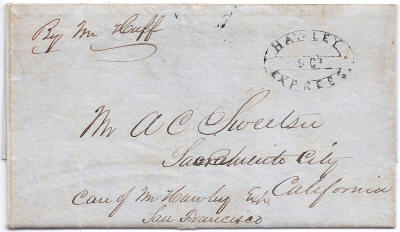 By Mr Huff
HAWLEY
& Co's
EXPRESS
Mr A C Sweetser
Sacramento City
California
Care of Mr Hawley Esq.
San Francisco